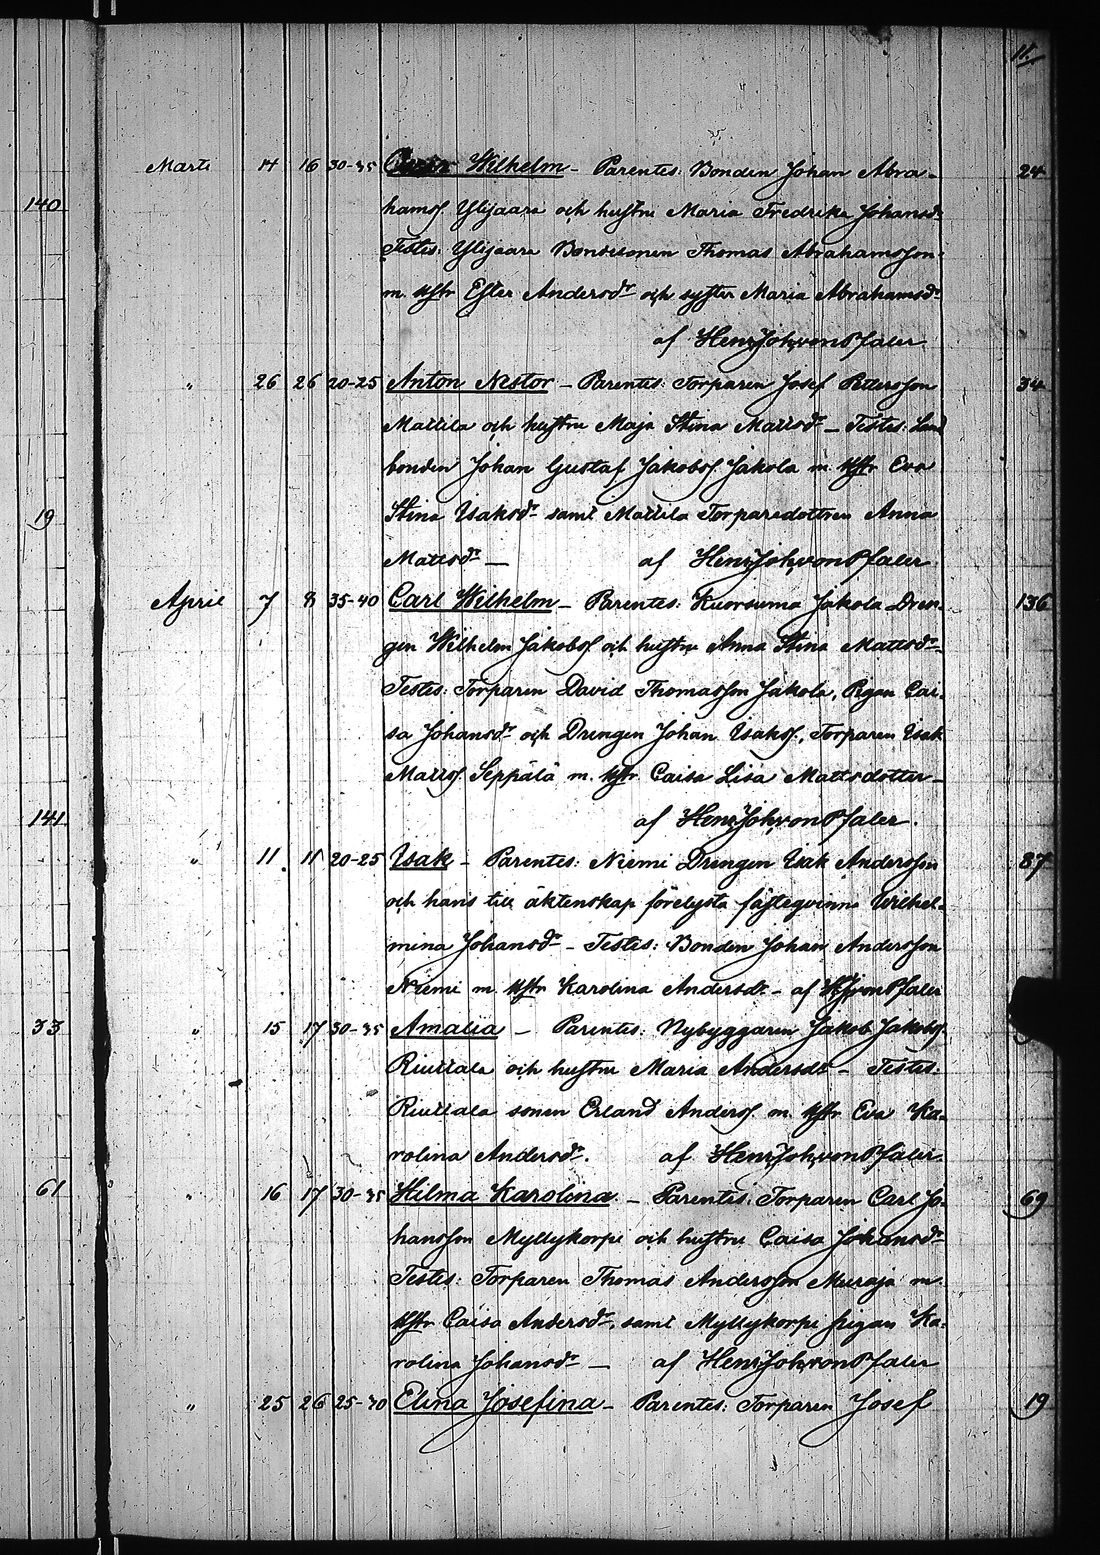 11.
Marti 14 16 30-35 Wilhelm - Parentes: Bonden Johan Abra- 24
140
hamsf. Ylijaara och hustru Maria Fredrika Johansdr
Testes: Ylijaara Bondesonen Thomas Abrahamsson
m. hstr Ester Andersdr och syster Maria Abrahamsdr
af Hen: Joh: von Pfaler.
" 26 26 20-25 Anton Nestor - Parentes: Torparen Josef Pettersson 34
Mattila och hustru Maja Stina Mattsdr - Testes: Land
bonden Johan Gustaf Jakobsf. Jakola m. hstr Eva
19
Stina Isaksdr samt Mattila Torparedottren Anna
Mattsdr - af Hen: Joh: von Pfaler.
April 7 8 35-40 Carl Wilhelm - Parentes: Kuorsuma Jakola Dren- 136
gen Wilhelm Jakobsf och hustru Anna Stina Mattsdr -
Testes: Torparen David Thomasson Jakola, Pigan Cai-
sa Johansdr och Drengen Johan Isaksf., Torparen Isak
Mattsf. Seppälä m. hstr Caisa Lisa Mattsdotter -
141
af Hen: Joh: von Pfaler.
" 11. 11 20-25 Isak - Parentes: Niemi Drengen Isak Andersson 87
och hans till äktenskap förelysta fästeqvinna Wilhel-
mina Johansdr - Testes: Bonden Johan Andersson
Niemi m. hstr Karolina Andersdr - af HJvon Pfaler
33
" 15 17 30-35 Amalia - Parentes: Nybyggaren Jakob Jakobsf.
Riuttala och hustru Maria Andersdr - Testes:
Riuttala sonen Erland Andersf. m. hstr Eva Ka-
rolina Andersdr. af Hen: Joh: von Pfaler.
61
" 16 17 30-35 Hilma Karolina - Parentes: Torparen Carl Jo- 69
hansson Myllykorpi och hustru Caisa Johansdr
Testes: Torparen Thomas Andersson Muraja m.
hstr Caisa Andersdr, samt Myllykorpi pigan Ka-
rolina Johansdr - af Hen: Joh: von Pfaler
" 25 26 25-30 Elina Josefina - Parentes: Torparen Josef 19